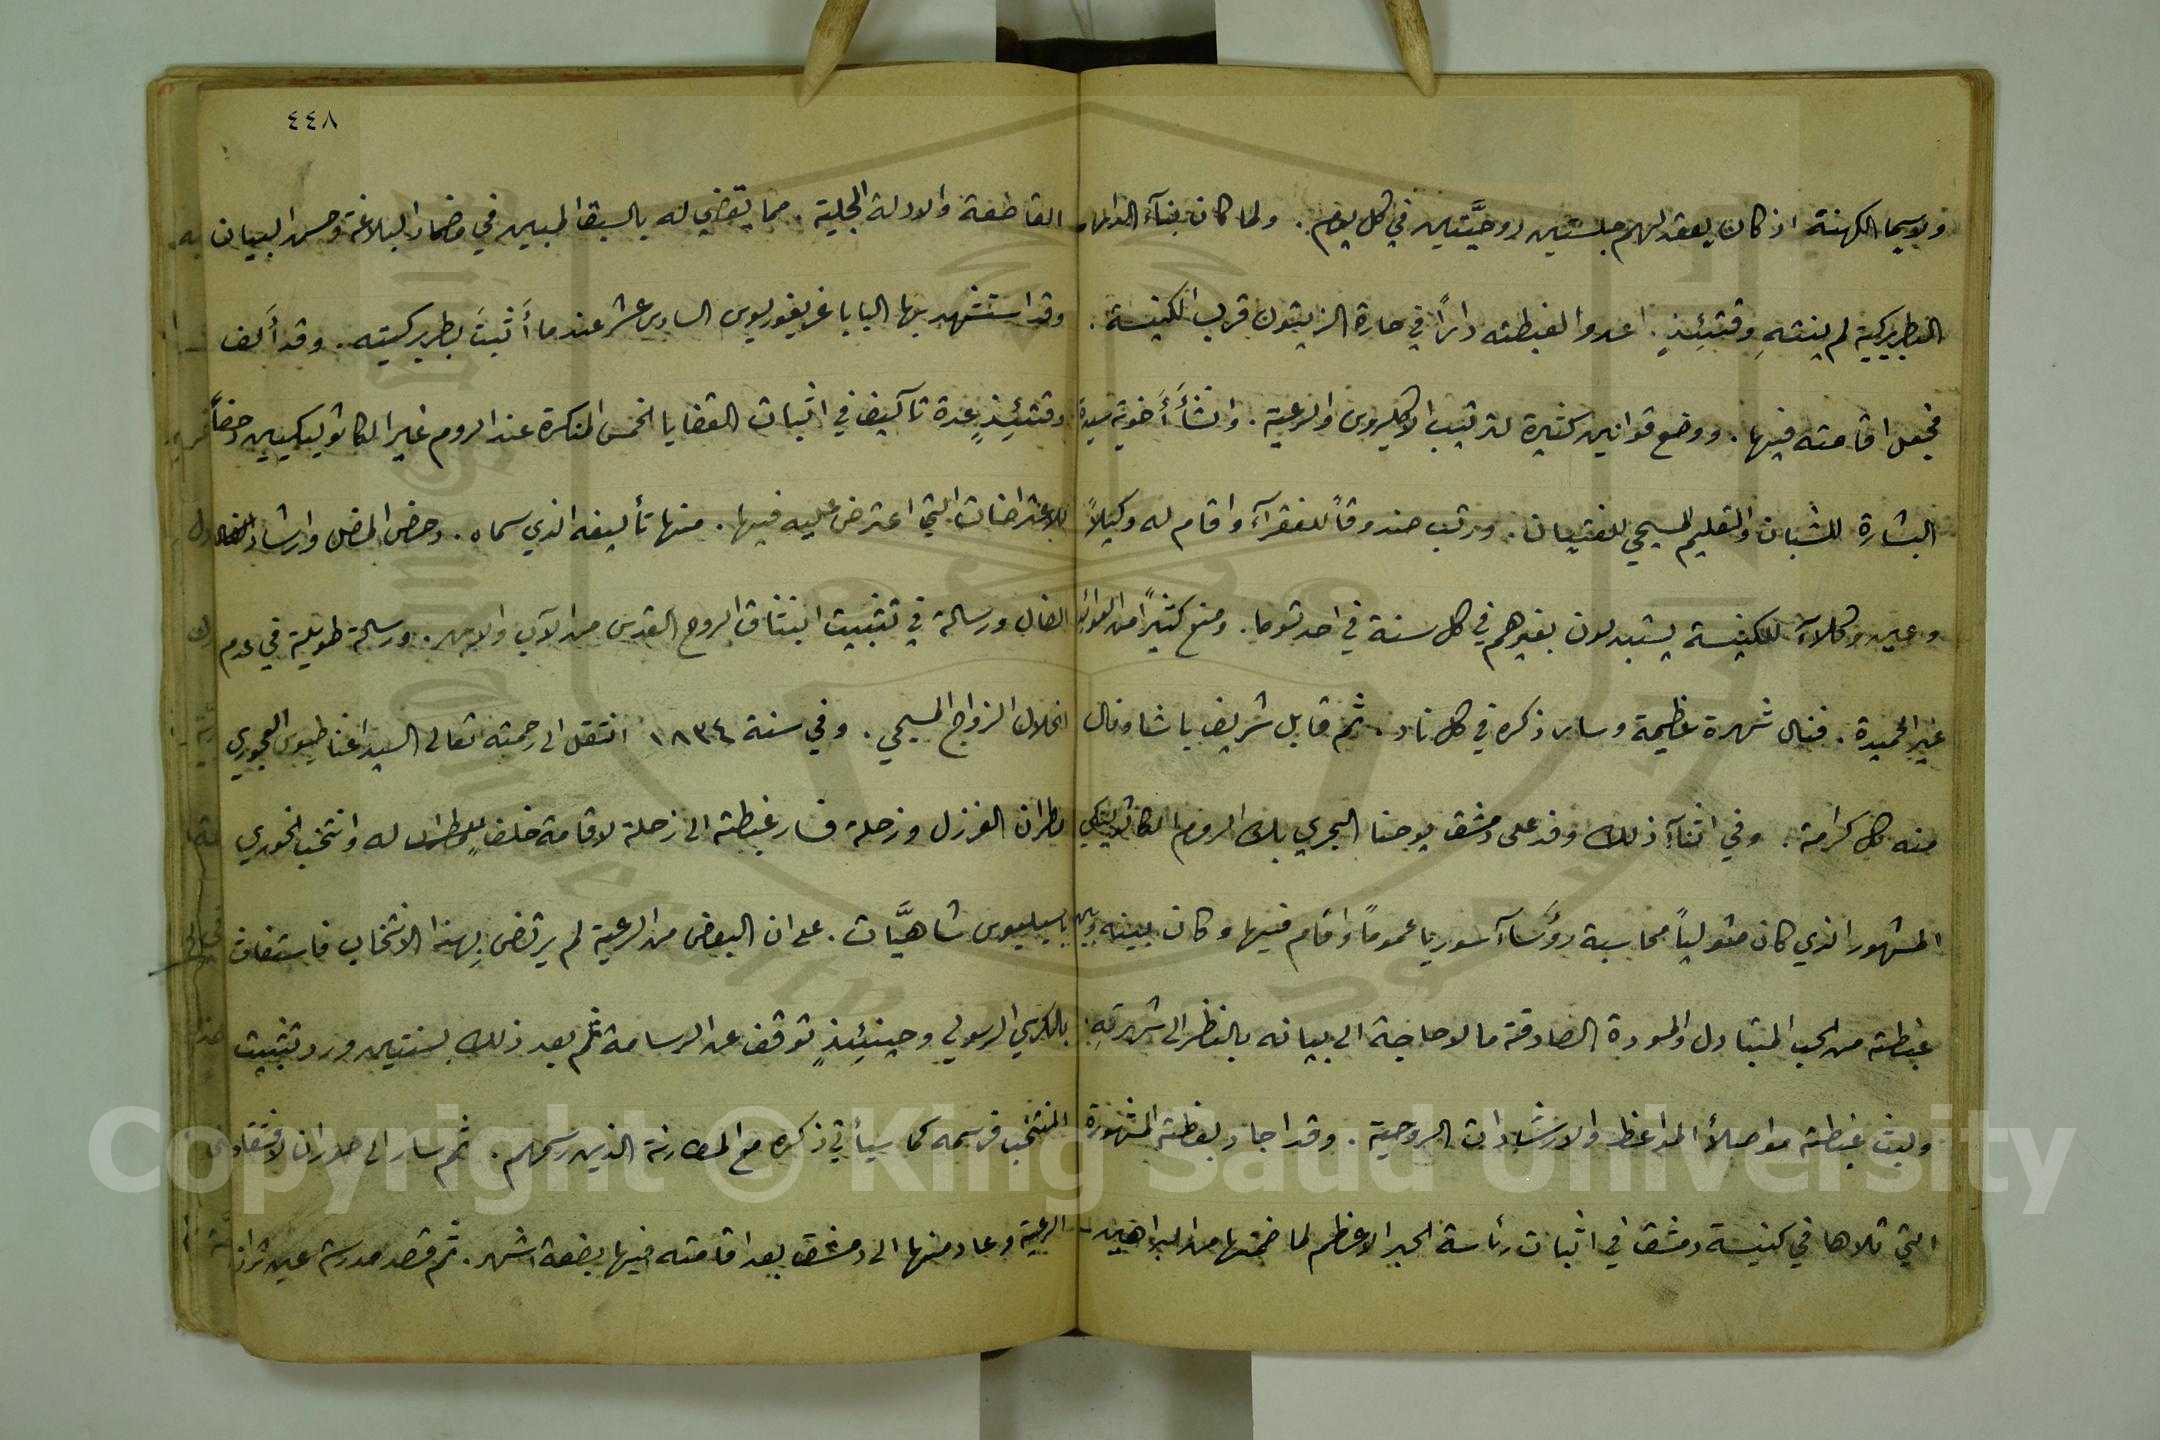 ولاسيما الكهنة اذ كان يعقد لهم جلستين روحيَّتين في كل يوم. ولما كان بنآء الدار
البطريركية لم ينتهِ وقتئِذٍ. اعدوا لغبطته داراً في حارة الزيتون قرب الكنيسة.
فجعل اقامته فيها. ووضع قوانين كثيرة لترتيب الاكليروس والرعية. وانشأَ أَخوية سيدة
البشارة للشبان والتعليم المسيحي للفتيان. ورتب صندوقاً للفقرآء واقام له وكيلاً
وعين وكلآء للكنيسة يستبدلون بغيرهم في كل سنة في احد توما. ومنع كثيراً من العوائد
غير الحميدة. فنال شهرة عظيمة وسار ذكره في كل ناد. ثم قابل شريف باشا ونال
منه كل كرامة. وفي اثنآء ذلك وفد على دمشق يوحنا البحري بك الروم الكاثوليكي
المشهور الذي كان متولياً محاسبة رؤَسآء سوريا عموماً واقام فيها وكان بينه وبين
غبطته من الحب المتبادل والمودة الصادقة ما لا حاجة الى بيانه بالنظر الى شهرتهِ.
ولبث غبطته مواصلاً المواعظ والارشادات الروحية. وقد اجاد بعظته المشهورة
التي تلاها في كنيسة دمشق في اثبات رئاسة الحبر الاعظم لما ضمنها من البراهين
٤٤٨
القاطعة والادلة الجلية. مما يقضي له بالسبق المبين في مضمار البلاغة وحسن البيان
وقد استشهد بها البابا غريغوريوس السادس عشر عندما أَثبتَ بطريركيته. وقد أَلف
وقتئِذٍ عدة تآليف في اثبات القضايا الخمس المنكرة عند الروم غير الكاثوليكيين دحضاً
للاعتراضات التي اعترض عليه فيها. منها تأليفه الذي سماه. دحض المضل وارشاد
الضال ورسالة في تثبيت انبثاق الروح القدس من الآب والابن. ورسالة طويلة في عدم
انحلال الزواج المسيحي. وفي سنة ١٨٣٤ انتقل الى رحمته تعالى السيد اغناطيوس العجوري
مطران الفرزل وزحلة فسار غبطته الى زحلة لاقامة خلفٍ له وانتخب الخوري
باسيليوس شاهيَّات. على ان البعض من الرعية لم يرتضِ بهذا الانتخاب فاستغاث
بالكرسي الرسولي وحينئِذٍ توقف عن الرسامة ثم بعد ذلك بسنتين ورد تثبيت
المنتخب فرسمه كما سيأتي ذكره مع المطارنة الذين رسمهم. ثم سار الى حوران لافتقاد
الرعية وعاد منها الى دمشق بعد اقامته فيها بضعة اشهر. ثم قصد مدرسة عين تراز
Copyright © King Saud University